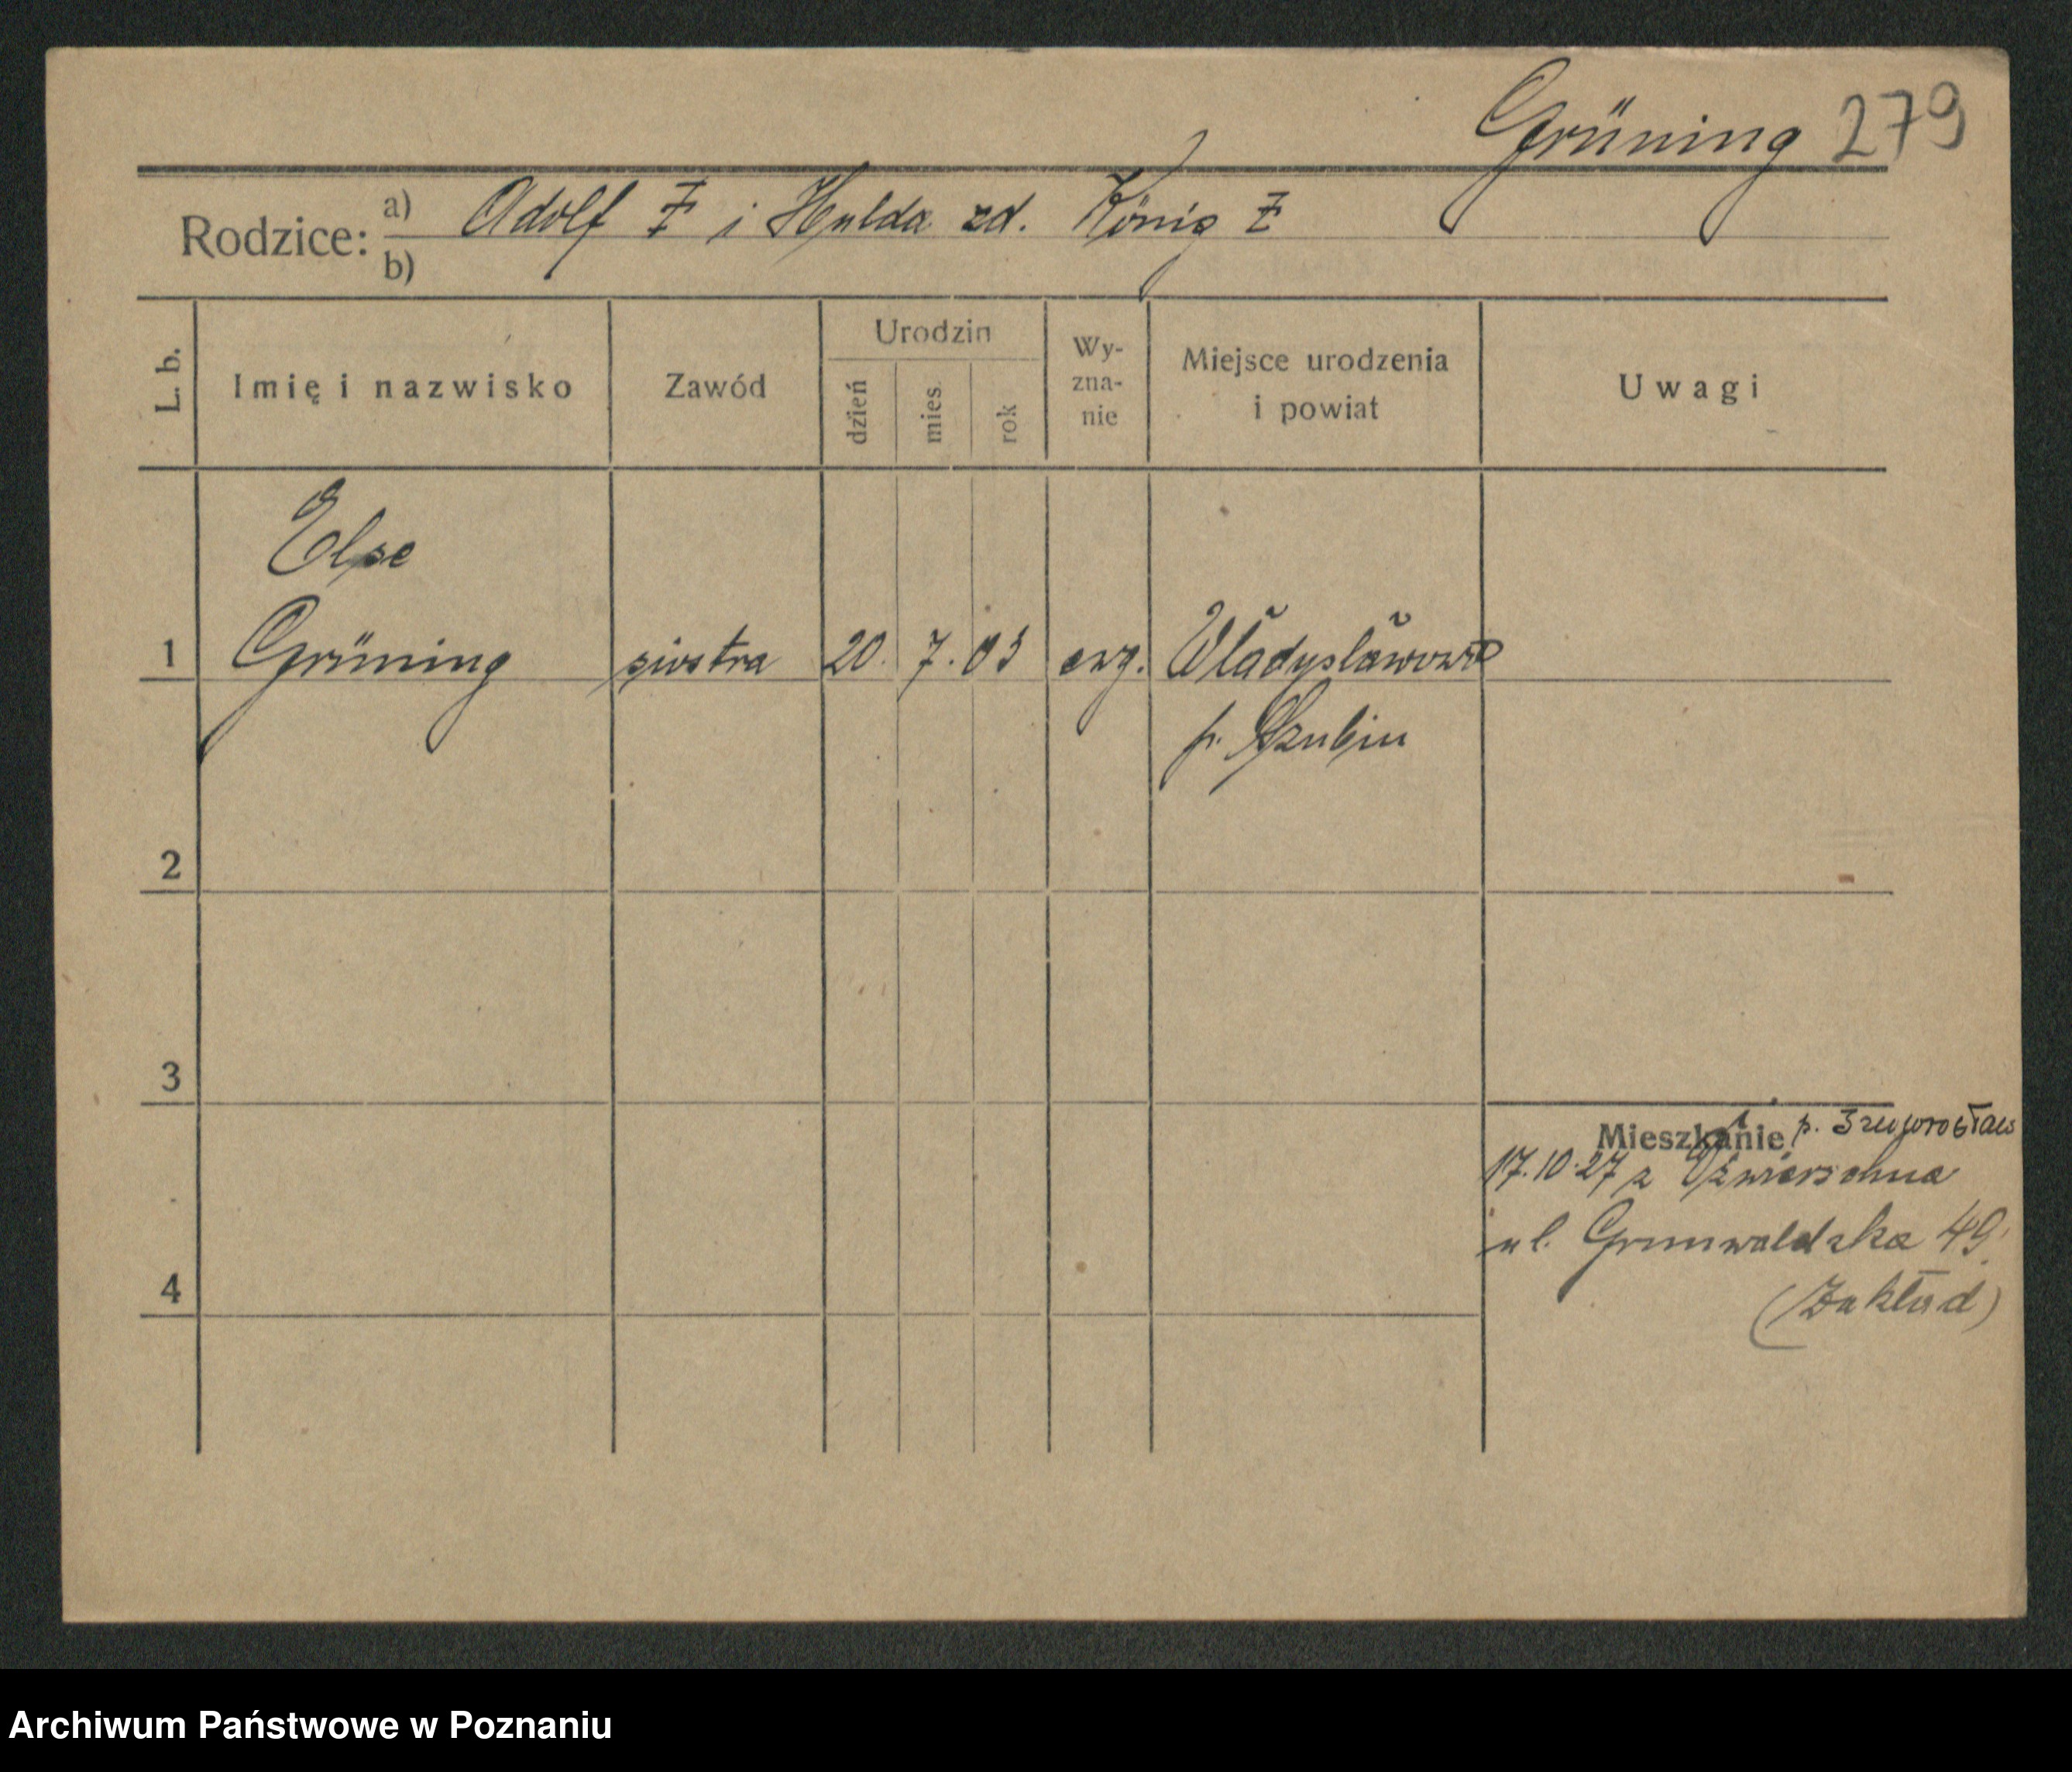 Grüning 279
Rodzice: a) Adolf Ƶ i Hulda zd. König Ƶ
b)
L. b.
Imię i nazwisko
Zawód
Urodzin
dzień
mies.
rok
Wy-
zna-
nie
Miejsce urodzenia
i powiat
Uwagi
Else
1 Grüning siostra 20. 7. 03 ewg. Władysławowo
p. Szubin
2
3
Mieszkanie p.
17.10.27 z
ul. Grunwaldzka 49.
(Zakład)
4
Archiwum Państwowe w Poznaniu